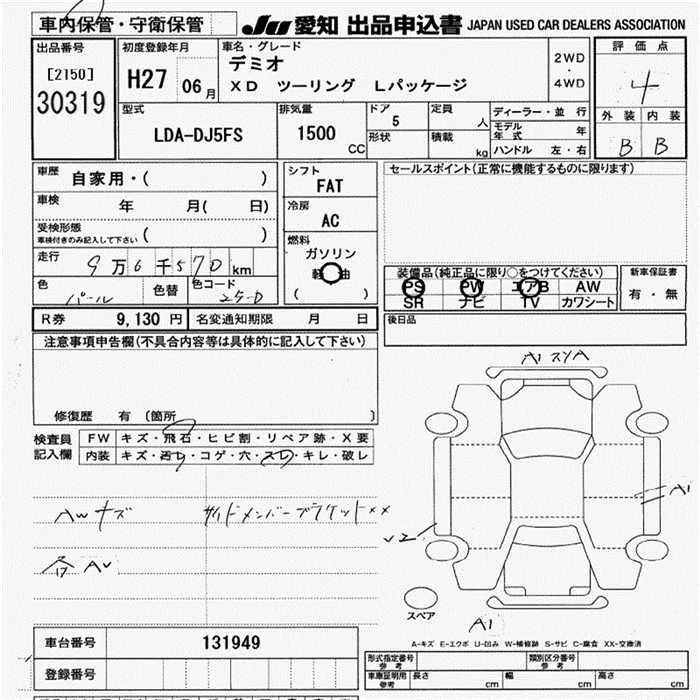 車内保管・守衛保管
JU 愛知 出品申込書 JAPAN USED CAR DEALERS ASSOCIATION
出品番号 [2150] 30319
初度登録年月 H27 06月
車名・グレード デミオ
XD ツーリング Lパッケージ
2WD・4WD
評価点 4
外装 内装
B B
型式 LDA-DJ5FS
排気量 1500 CC
ドア 5
形状
定員 人
積載 kg
ディーラー・並行
モデル年式 年
ハンドル 左・右
車歴 自家用・( )
車検 年 月( 日)
受検形態 車検付きのみ記入して下さい ( )
走行 9万6千570km
色 パール 色替 色コード 25D
シフト FAT
冷房 AC
燃料 ガソリン
軽油
( )
セールスポイント(正常に機能するものに限ります)
装備品(純正品に限り○をつけてください)
PS PW エアB AW
SR ナビ TV カワシート
新車保証書 有・無
後日品
R券 9,130円 名変通知期限 月 日
注意事項申告欄(不具合内容等は具体的に記入して下さい)
修復歴 有 〔箇所 〕
検査員記入欄
FW キズ・飛石・ヒビ割・リペア跡・X要
内装 キズ・汚れ・コゲ・穴・スレ・キレ・破レ
AWキズ サイドメンバーブラケットxx
各AU
A1 スリA
A1
U2
A1
スペア
A-キズ E-エクボ U-凹み W-補修跡 S-サビ C-腐食 XX-交換済
車台番号 131949
登録番号
形式指定番号 参考 類別区分番号 参考
車庫証明用 参考 長さ cm 幅 cm 高さ cm